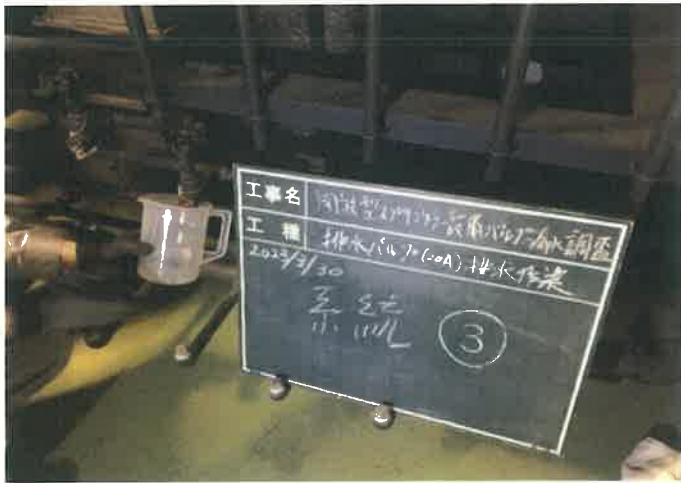 工事名 開放型スプリンクラー設備バルブ漏水調査
工種 排水バルブ(20A)排水作業
2023/3/30
系統 ③